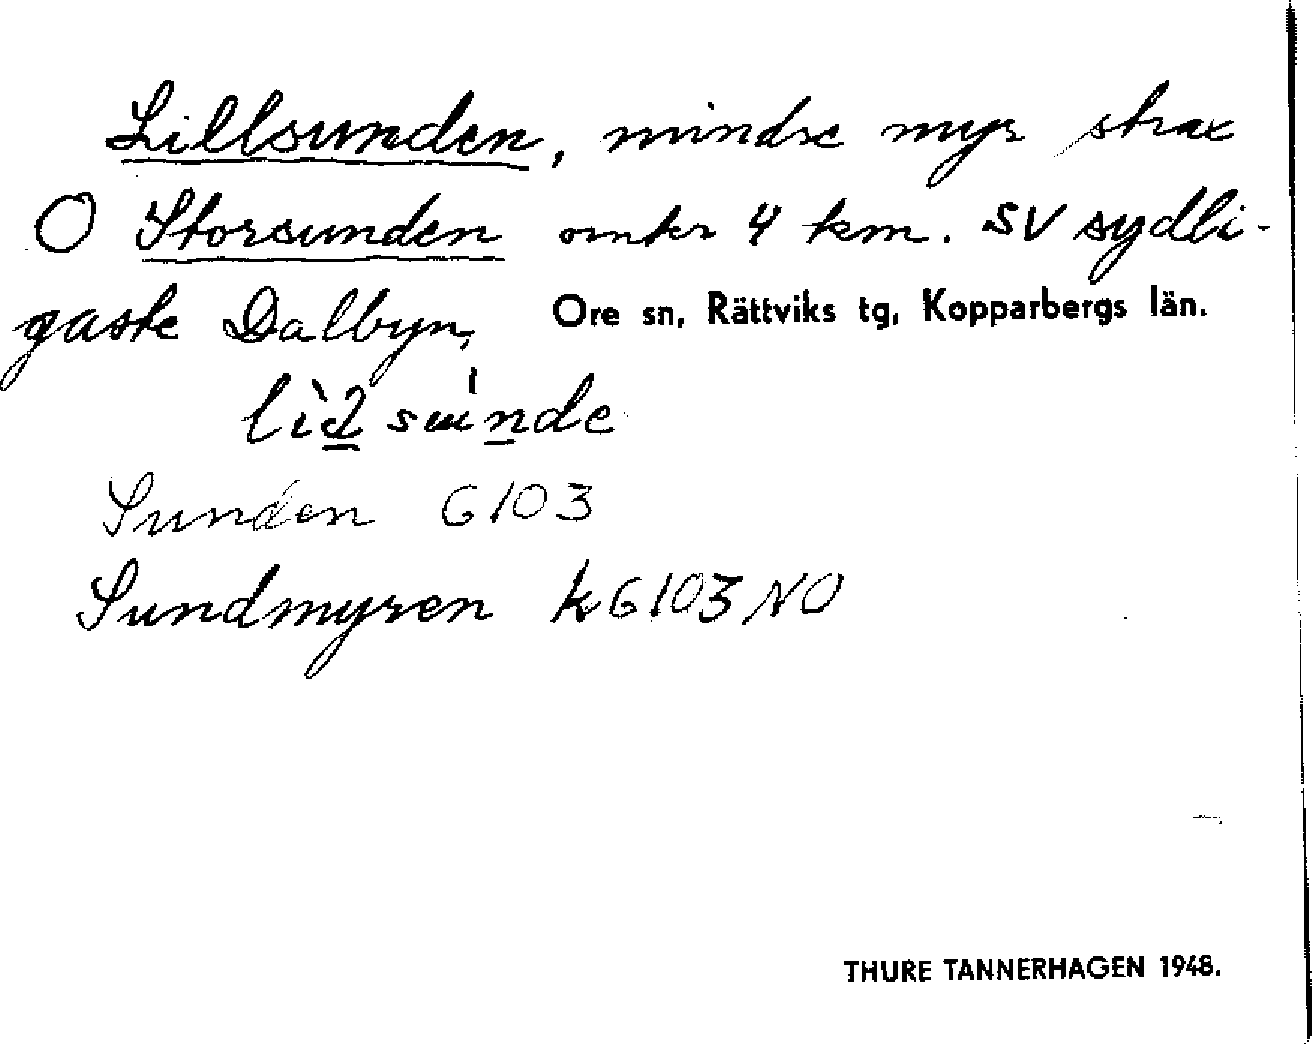 Lillsunden, mindre myr strax
O Storsunden omkr 4 km. SV sydli-
gaste Dalbyn, Ore sn, Rättviks tg, Kopparbergs län.
Sunden G103
Sundmyren k G103 NO
THURE TANNERHAGEN 1948.